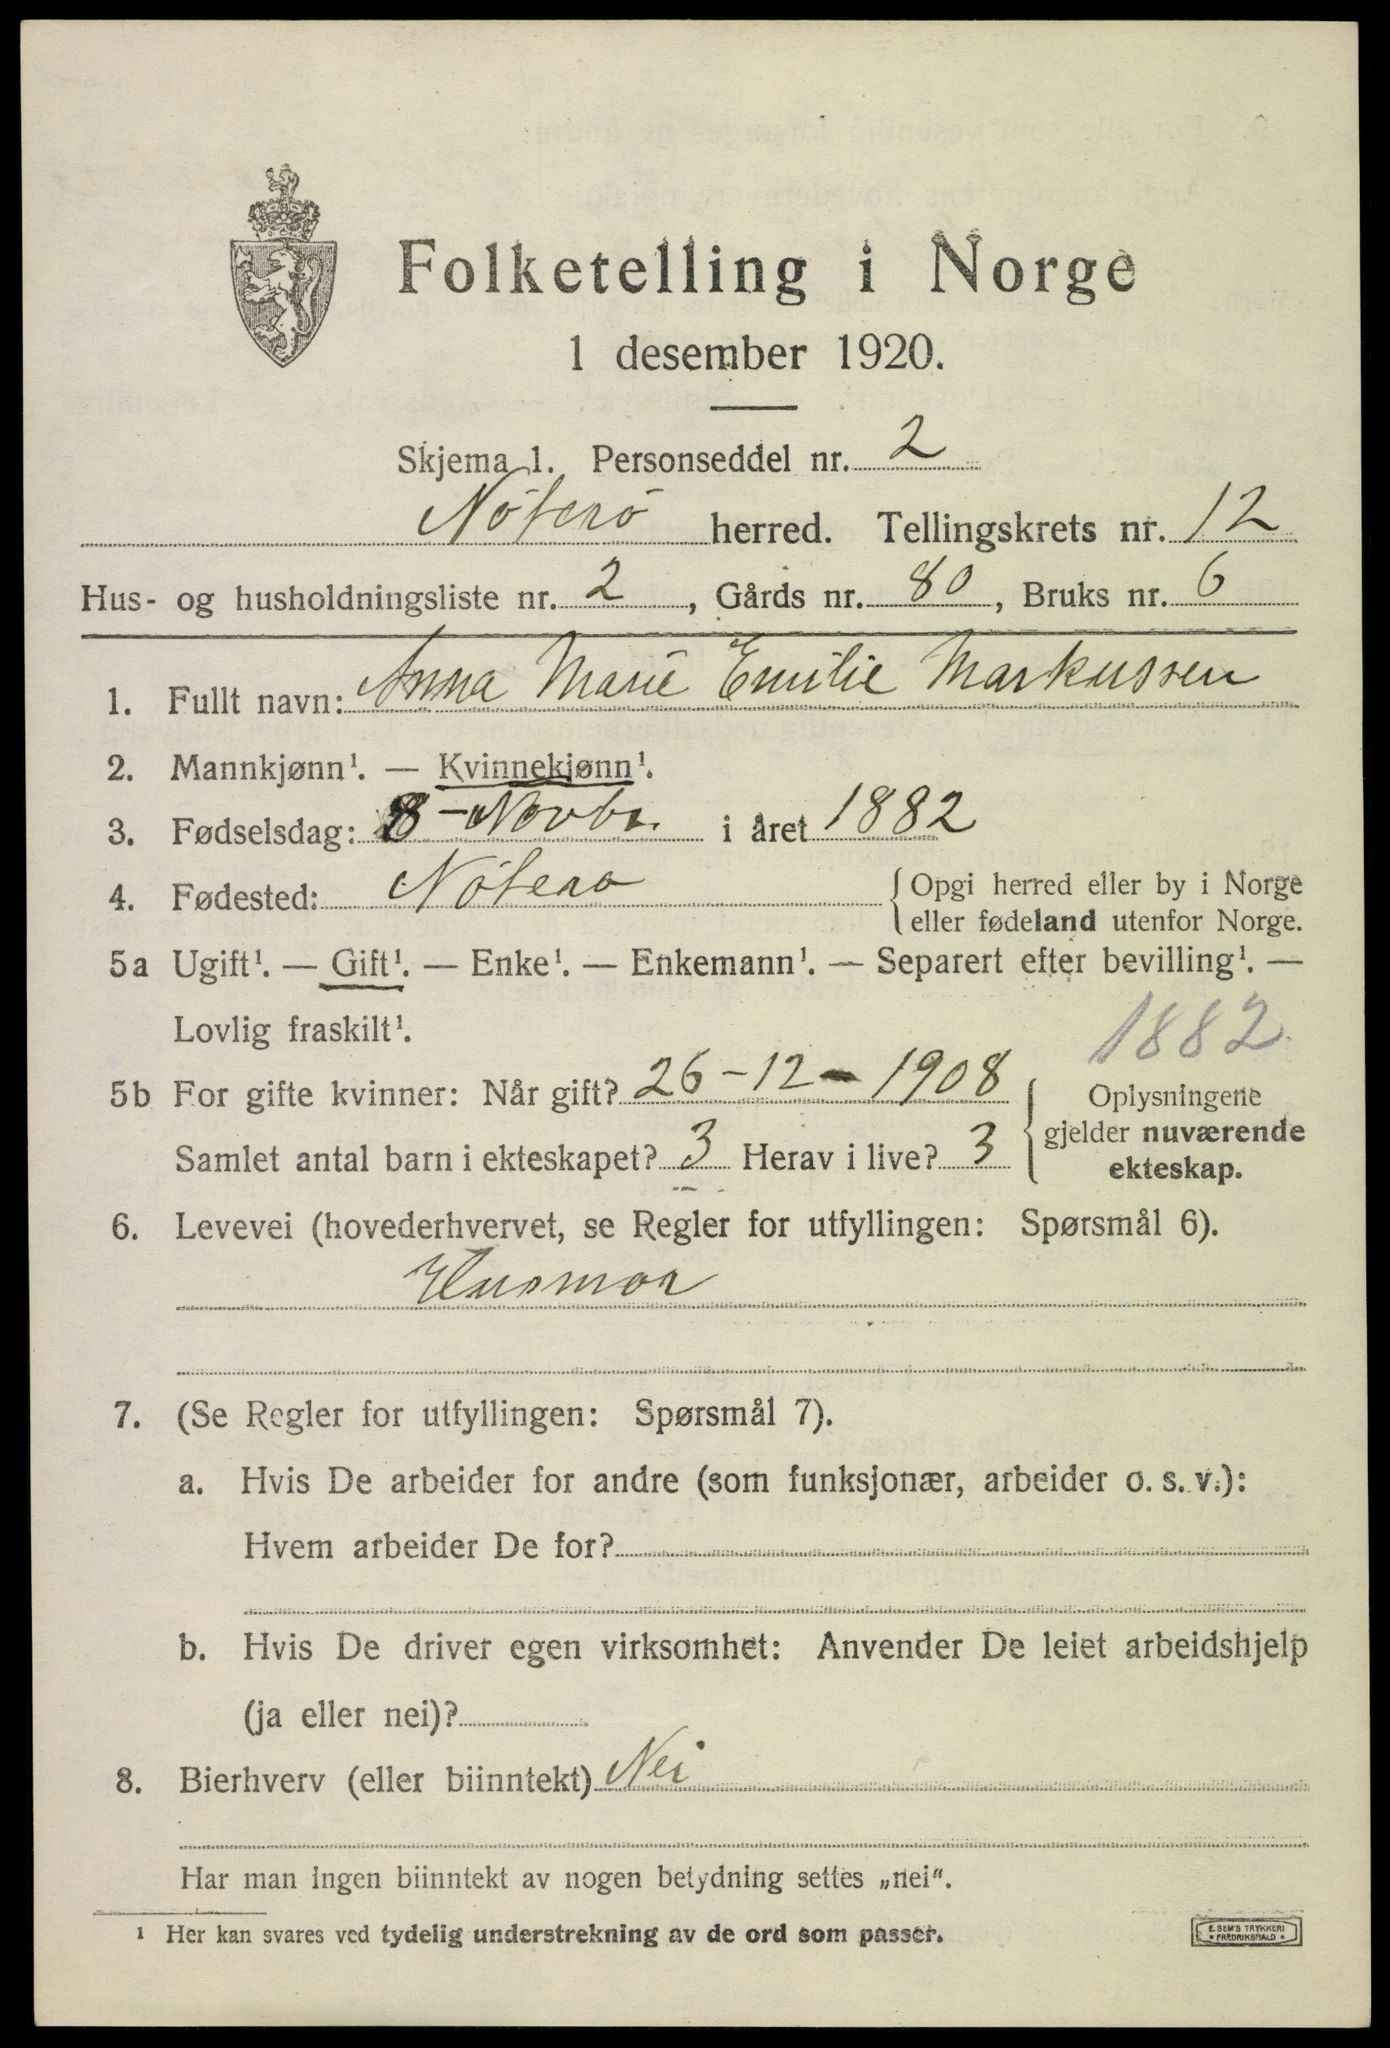 Folketelling i Norge
1 desember 1920.
Skjema 1. Personseddel nr. 2
Nöterö herred. Tellingskrets nr. 12
Hus- og husholdningsliste nr. 2, Gårds nr. 80, Bruks nr. 6
1. Fullt navn: Anna Marie Emilie Markussen
2. Mannkjønn¹. — Kvinnekjønn¹.
3. Fødselsdag: 8 - Novbr. i året 1882
4. Fødested: Nöterö { Opgi herred eller by i Norge
eller fødeland utenfor Norge.
5a Ugift¹. — Gift¹. — Enke¹. — Enkemann¹. — Separert efter bevilling¹. —
Lovlig fraskilt¹.
1882
5b For gifte kvinner: Når gift? 26-12-1908 { Oplysningene
gjelder nuværende
Samlet antal barn i ekteskapet? 3 Herav i live? 3
ekteskap.
6. Levevei (hovederhvervet, se Regler for utfyllingen: Spørsmål 6).
Husmor
7. (Se Regler for utfyllingen: Spørsmål 7).
a. Hvis De arbeider for andre (som funksjonær, arbeider o. s. v.):
Hvem arbeider De for?
b. Hvis De driver egen virksomhet: Anvender De leiet arbeidshjelp
(ja eller nei)?
8. Bierhverv (eller biinntekt) Nei
Har man ingen biinntekt av nogen betydning settes „nei“.
¹ Her kan svares ved tydelig understrekning av de ord som passer.
E. SEM'S TRYKKERI
* FREDRIKSHALD *